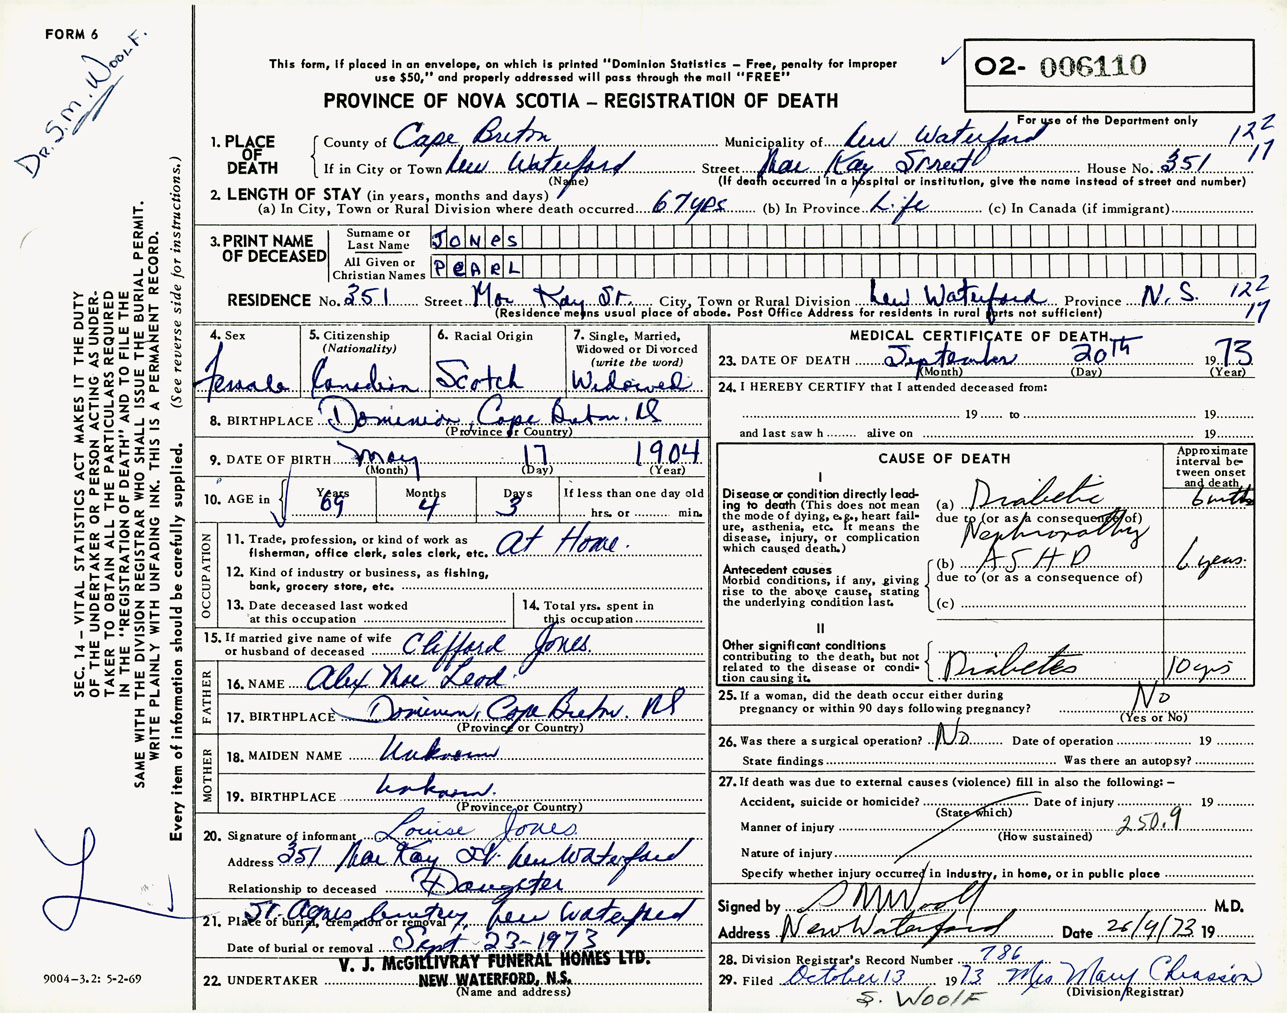 FORM 6
DR. S.M. WOOLF.
This form, if placed in an envelope, on which is printed "Dominion Statistics – Free, penalty for improper
use $50," and properly addressed will pass through the mail "FREE"
PROVINCE OF NOVA SCOTIA – REGISTRATION OF DEATH
O2- 006110
For use of the Department only
1. PLACE OF DEATH
County of Cape Breton Municipality of New Waterford 122
If in City or Town New Waterford Street Mac Kay Street House No. 351 17
(Name) (If death occurred in a hospital or institution, give the name instead of street and number)
2. LENGTH OF STAY (in years, months and days)
(a) In City, Town or Rural Division where death occurred 67 yrs (b) In Province Life (c) In Canada (if immigrant)
3. PRINT NAME OF DECEASED
Surname or Last Name JONES
All Given or Christian Names PEARL
RESIDENCE No. 351 Street Mac Kay St. City, Town or Rural Division New Waterford Province N.S. 122
(Residence means usual place of abode. Post Office Address for residents in rural parts not sufficient) 17
4. Sex
Female
5. Citizenship
(Nationality)
Canadian
6. Racial Origin
Scotch
7. Single, Married,
Widowed or Divorced
(write the word)
Widowed
8. BIRTHPLACE Dominion, Cape Breton. NS
(Province or Country)
9. DATE OF BIRTH May 17 1904
(Month) (Day) (Year)
10. AGE in
Years 69
Months 4
Days 3
If less than one day old
hrs. or min.
OCCUPATION
11. Trade, profession, or kind of work as
fisherman, office clerk, sales clerk, etc. At Home.
12. Kind of industry or business, as fishing,
bank, grocery store, etc.
13. Date deceased last worked
at this occupation
14. Total yrs. spent in
this occupation
15. If married give name of wife
or husband of deceased Clifford Jones.
FATHER
16. NAME Alex Mac Leod.
17. BIRTHPLACE Dominion, Cape Breton. NS
(Province or Country)
MOTHER
18. MAIDEN NAME Unknown
19. BIRTHPLACE Unknown.
(Province or Country)
20. Signature of informant Louise Jones
Address 351 Mac Kay St. New Waterford
Relationship to deceased Daughter
21. Place of burial, cremation or removal St. Agnes Cemetery, New Waterford
Date of burial or removal Sept 23-1973
22. UNDERTAKER V. J. McGILLIVRAY FUNERAL HOMES LTD.
NEW WATERFORD, N.S.
(Name and address)
MEDICAL CERTIFICATE OF DEATH
23. DATE OF DEATH September 20th 1973
(Month) (Day) (Year)
24. I HEREBY CERTIFY that I attended deceased from:
19 to 19
and last saw h alive on 19
CAUSE OF DEATH
Approximate
interval be-
tween onset
and death
I
Disease or condition directly lead-
ing to death (This does not mean
the mode of dying, e.g., heart fail-
ure, asthenia, etc. It means the
disease, injury, or complication
which caused death.)
(a) Diabetic 6 mths
due to (or as a consequence of)
Nephropathy
Antecedent causes
Morbid conditions, if any, giving
rise to the above cause, stating
the underlying condition last.
(b) ASHD 6 years.
due to (or as a consequence of)
(c)
II
Other significant conditions
contributing to the death, but not
related to the disease or condi-
tion causing it.
Diabetes 10 yrs
25. If a woman, did the death occur either during
pregnancy or within 90 days following pregnancy? No
(Yes or No)
26. Was there a surgical operation? No Date of operation 19
State findings Was there an autopsy?
27. If death was due to external causes (violence) fill in also the following: –
Accident, suicide or homicide? Date of injury 19
(State which)
Manner of injury 250.9
(How sustained)
Nature of injury
Specify whether injury occurred in industry, in home, or in public place
Signed by S M Woolf M.D.
Address New Waterford Date 26/9/73 19
28. Division Registrar's Record Number 786
29. Filed October 13 1973 Mrs Mary Chiasson
(Division Registrar)
S. WOOLF
SEC. 14 – VITAL STATISTICS ACT MAKES IT THE DUTY
OF THE UNDERTAKER OR PERSON ACTING AS UNDER-
TAKER TO OBTAIN ALL THE PARTICULARS REQUIRED
IN THE "REGISTRATION OF DEATH" AND TO FILE THE
SAME WITH THE DIVISION REGISTRAR WHO SHALL ISSUE THE BURIAL PERMIT.
WRITE PLAINLY WITH UNFADING INK. THIS IS A PERMANENT RECORD.
Every item of information should be carefully supplied. (See reverse side for instructions.)
9004–3.2: 5-2-69